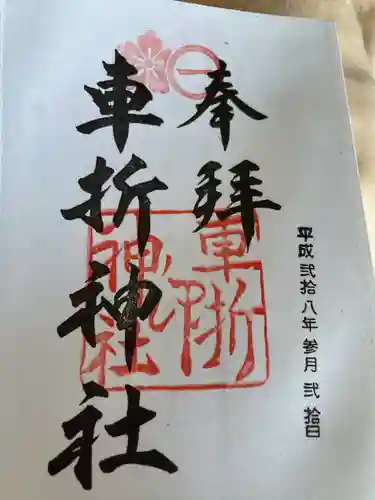 奉拝
車折神社
車折
神社
平成弐拾八年参月弐拾日